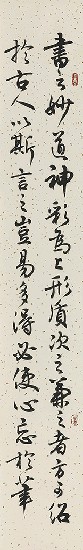 書之妙道神彩為上形質次之兼之者方可紹
於古人以斯言之豈易多得必使心忘於筆